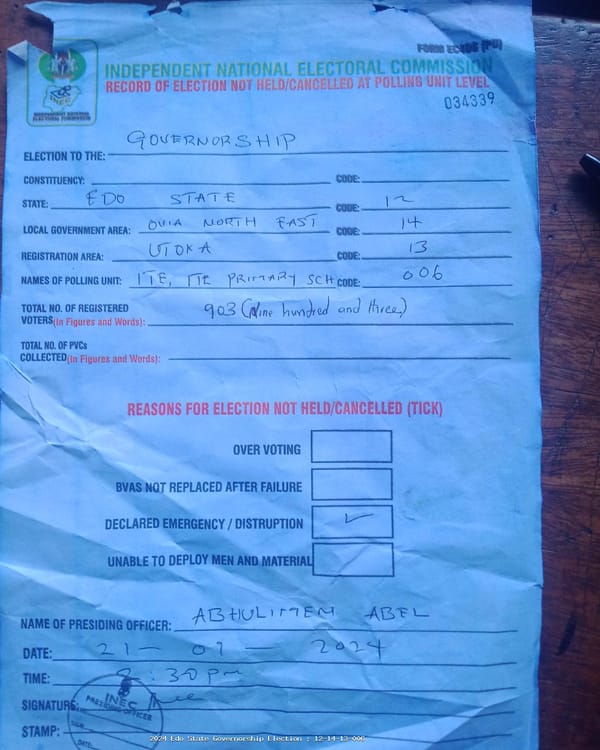 FORM EC40G (PU)
INDEPENDENT NATIONAL ELECTORAL COMMISSION
RECORD OF ELECTION NOT HELD/CANCELLED AT POLLING UNIT LEVEL
034339
INEC
INDEPENDENT NATIONAL
ELECTORAL COMMISSION
ELECTION TO THE: GOVERNORSHIP
CONSTITUENCY: CODE:
STATE: EDO STATE CODE: 12
LOCAL GOVERNMENT AREA: OVIA NORTH EAST CODE: 14
REGISTRATION AREA: UTOKA CODE: 13
NAMES OF POLLING UNIT: ITE, ITE PRIMARY SCH CODE: 006
TOTAL NO. OF REGISTERED
VOTERS(In Figures and Words): 903 (Nine hundred and three)
TOTAL NO. OF PVCs
COLLECTED(In Figures and Words):
REASONS FOR ELECTION NOT HELD/CANCELLED (TICK)
OVER VOTING
BVAS NOT REPLACED AFTER FAILURE
DECLARED EMERGENCY / DISTRUPTION ✓
UNABLE TO DEPLOY MEN AND MATERIAL
NAME OF PRESIDING OFFICER: ABHULIMEN ABEL
DATE: 21 - 09 - 2024
TIME: :30pm
SIGNATURE:
INEC
PRESIDING OFFICER
STAMP:
DATE:
2024 Edo State Governorship Election : 12-14-13-006